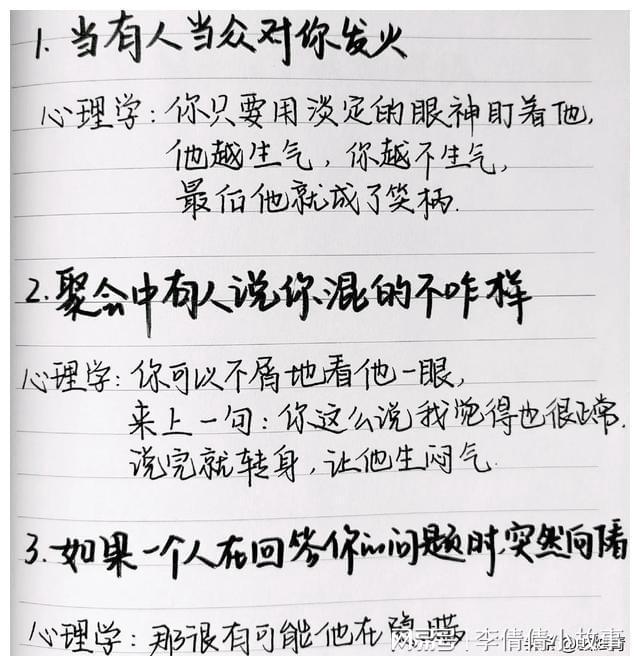 1. 当有人当众对你发火
心理学:你只要用淡定的眼神盯着他,
他越生气,你越不生气,
最后他就成了笑柄.
2.聚会中有人说你混的不咋样
心理学:你可以不屑地看他一眼,
来上一句:你这么说我觉得也很正常.
说完就转身,让他生闷气.
3.如果一个人在回答你的问题时,突然向隔
心理学:那很有可能他在隐瞒
网易号 | 李倩倩小故事
头条 @